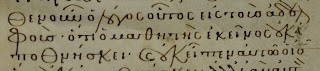 θεν οὖν ὁ λόγος οὗτος εἰς τοὺς ἀδελ
φοὺς· ὅτι ὁ μαθητὴς ἐκεῖνος οὐκ ἀ
ποθνήσκει· καὶ οὐκ εἶπεν αὐτῷ ὁ ις